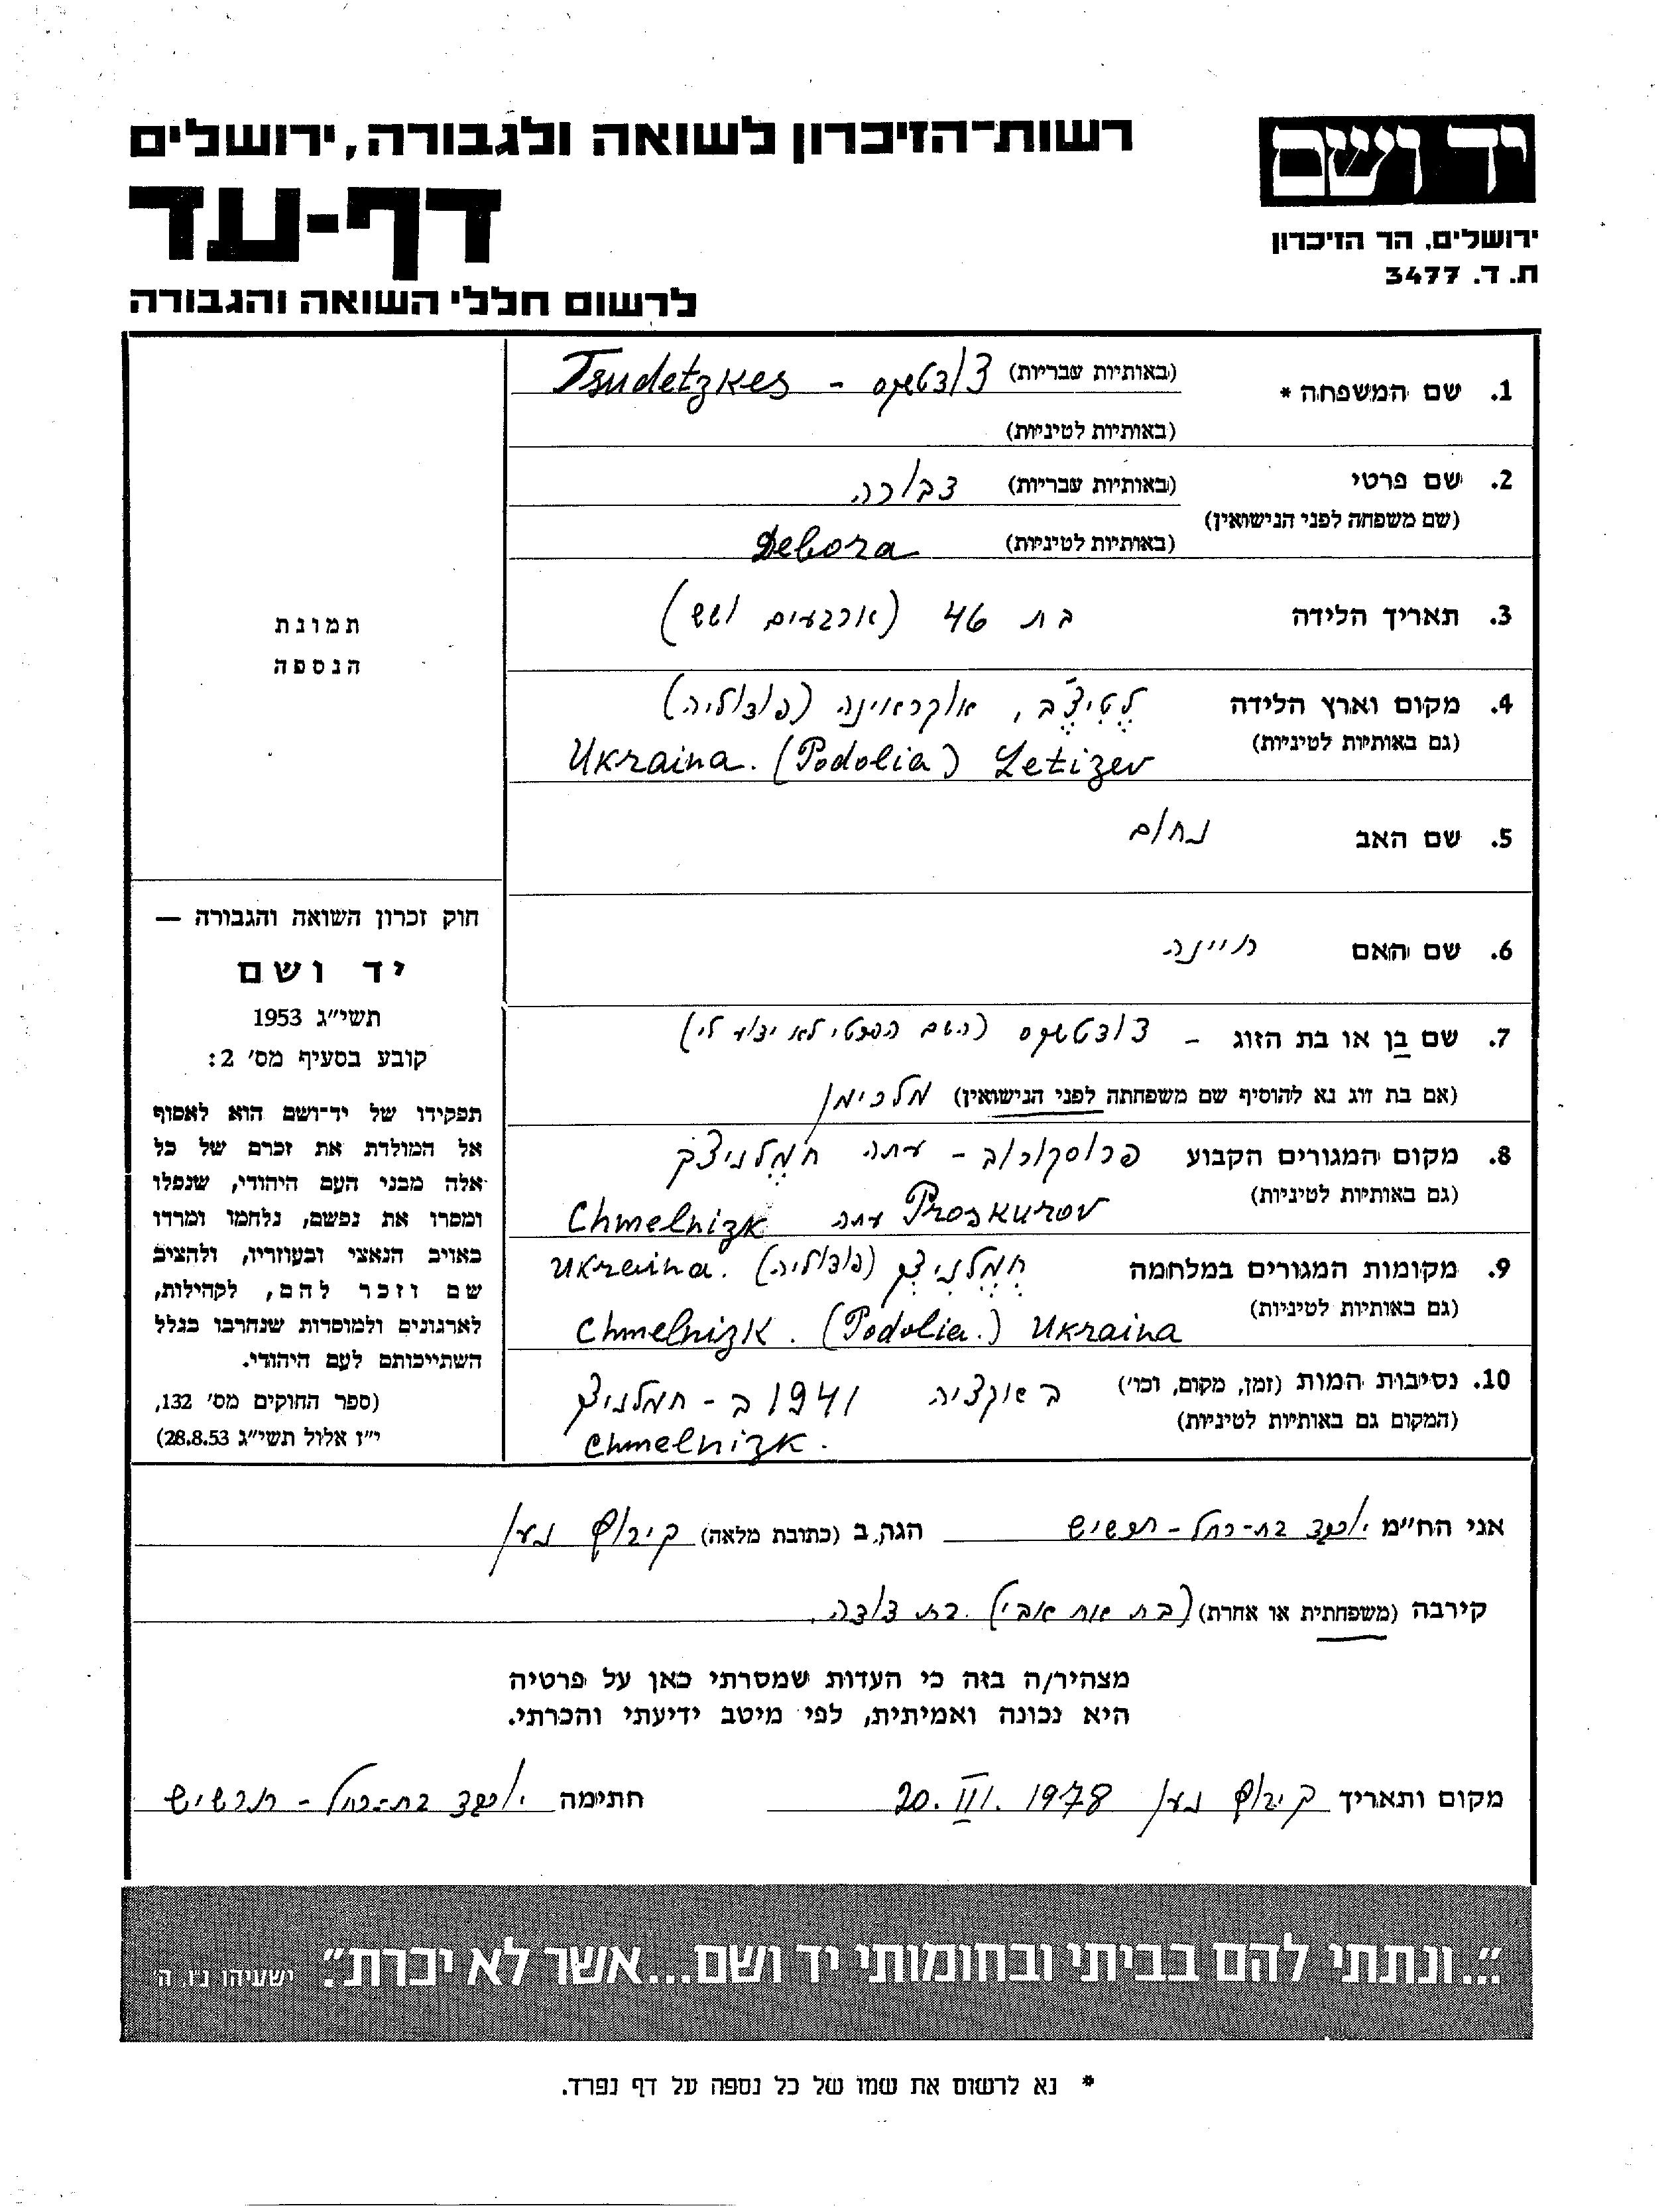 רשות־הזיכרון לשואה ולגבורה, ירושלים
יד ושם
דף-עד
ירושלים, הר הזיכרון
ת. ד. 3477
לרשום חללי השואה והגבורה
1. שם המשפחה * (באותיות עבריות) צודטשקס - Tsudetzkes
(באותיות לטיניות)
2. שם פרטי (באותיות עבריות) דבורה
(שם משפחה לפני הנישואין)
(באותיות לטיניות) Debora
3. תאריך הלידה בת 46 (ארבעים ושש)
4. מקום וארץ הלידה לטיצ'ב, אוקראינה (פודוליה)
(גם באותיות לטיניות) Ukraina. (Podolia) Letizev
5. שם האב נחום
6. שם האם חיינה
7. שם בן או בת הזוג - צודטשקס (השם הפרטי לא ידוע לי)
(אם בת זוג נא להוסיף שם משפחתה לפני הנישואין) מלכימן
8. מקום המגורים הקבוע פרוסקורוב - עתה חמלניצק
(גם באותיות לטיניות) Proskurov עתה Chmelnizk
9. מקומות המגורים במלחמה חמלניצק (פודוליה) Ukraina.
(גם באותיות לטיניות) Chmelnizk. (Podolia.) Ukraina
10. נסיבות המות (זמן, מקום, וכו') באקציה 1941 ב - חמלניצק
(המקום גם באותיות לטיניות) Chmelnizk.
תמונת
הנספה
חוק זכרון השואה והגבורה —
יד ושם
תשי"ג 1953
קובע בסעיף מס' 2:
תפקידו של יד־ושם הוא לאסוף
אל המולדת את זכרם של כל
אלה מבני העם היהודי, שנפלו
ומסרו את נפשם, נלחמו ומרדו
באויב הנאצי ובעוזריו, ולהציב
שם וזכר להם, לקהילות,
לארגונים ולמוסדות שנחרבו בגלל
השתייכותם לעם היהודי.
(ספר החוקים מס' 132,
י"ז אלול תשי"ג 28.8.53)
אני הח"מ יוכבד בת-רחל - תרשיש הגר ב (כתובת מלאה) קיבוץ נען
קירבה (משפחתית או אחרת) (בת אח אבי) בת דודה.
מצהיר/ה בזה כי העדות שמסרתי כאן על פרטיה
היא נכונה ואמיתית, לפי מיטב ידיעתי והכרתי.
מקום ותאריך קיבוץ נען 20. III. 1978 חתימה יוכבד בת-רחל - תרשיש
"...ונתתי להם בביתי ובחומותי יד ושם...אשר לא יכרת". ישעיהו נ"ו, ה'
* נא לרשום את שמו של כל נספה על דף נפרד.